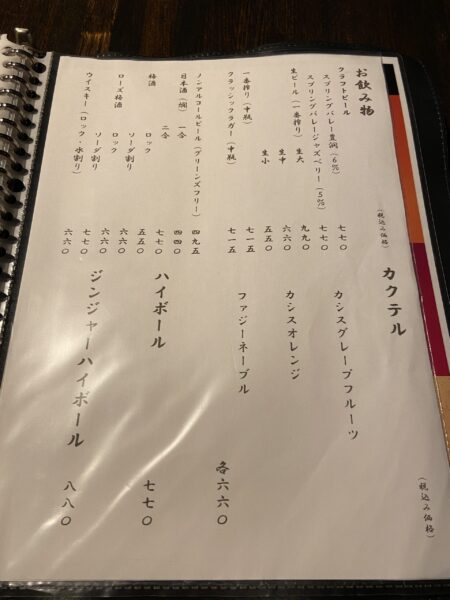 お飲み物 (税込み価格)
クラフトビール
スプリングバレー豊潤(6%) 七七〇
スプリングバレージャズベリー(5%) 七七〇
生ビール(一番搾り) 生大 九九〇
生中 六六〇
生小 五五〇
一番搾り(中瓶) 七一五
クラッシックラガー(中瓶) 七一五
ノンアルコールビール(グリーンズフリー) 四九五
日本酒(燗) 一合 四四〇
二合 七七〇
梅酒 ロック 五五〇
ソーダ割り 六六〇
ローズ梅酒 ロック 六六〇
ソーダ割り 七七〇
ウイスキー(ロック・水割り) 六六〇
カクテル (税込み価格)
カシスグレープフルーツ
カシスオレンジ
ファジーネーブル
各六六〇
ハイボール 七七〇
ジンジャーハイボール 八八〇